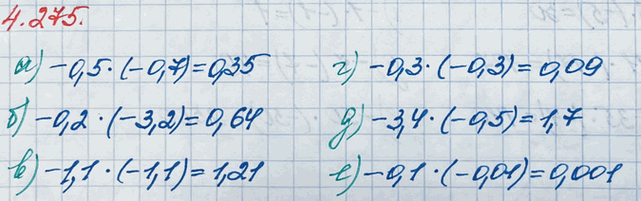 4.275.
а) -0,5·(-0,7)=0,35
б) -0,2·(-3,2)=0,64
в) -1,1·(-1,1)=1,21
г) -0,3·(-0,3)=0,09
д) -3,4·(-0,5)=1,7
е) -0,1·(-0,01)=0,001